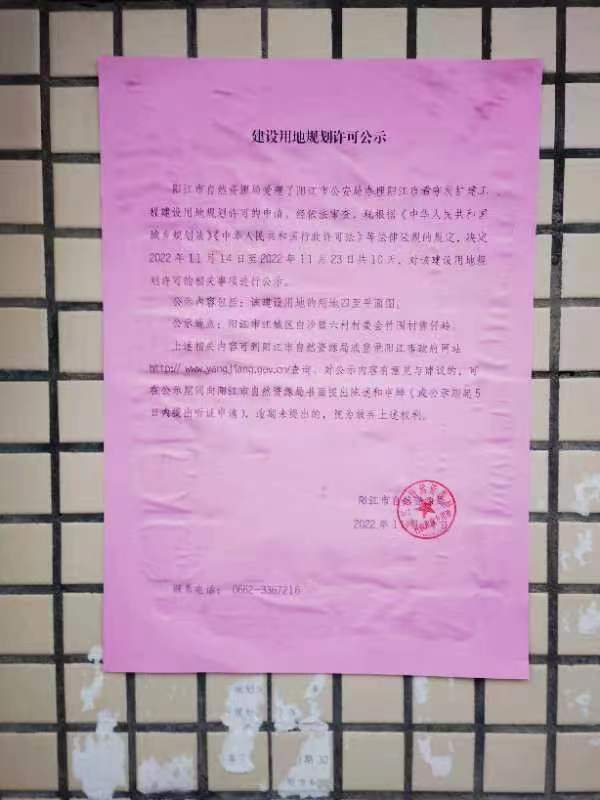 建设用地规划许可公示
阳江市自然资源局受理了阳江市公安局办理阳江市看守所扩建工
程建设用地规划许可的申请，经依法审查，现根据《中华人民共和国
城乡规划法》《中华人民共和国行政许可法》等法律法规的规定，决定
2022年11月14日至2022年11月23日共10天，对该建设用地规
划许可的相关事项进行公示。
公示内容包括：该建设用地的用地四至平面图。
公示地点：阳江市江城区白沙街六村村委会竹围村
上述相关内容可到阳江市自然资源局或登录阳江市政府网站
http://www.yangjiang.gov.cn/查询。对公示内容有意见与建议的，可
在公示期间向阳江市自然资源局书面提出陈述和申辩（或公示期起5
日内提出听证申请），逾期未提出的，视为放弃上述权利。
阳江市自然资源局
2022年11月 日
联系电话：0662-3367216